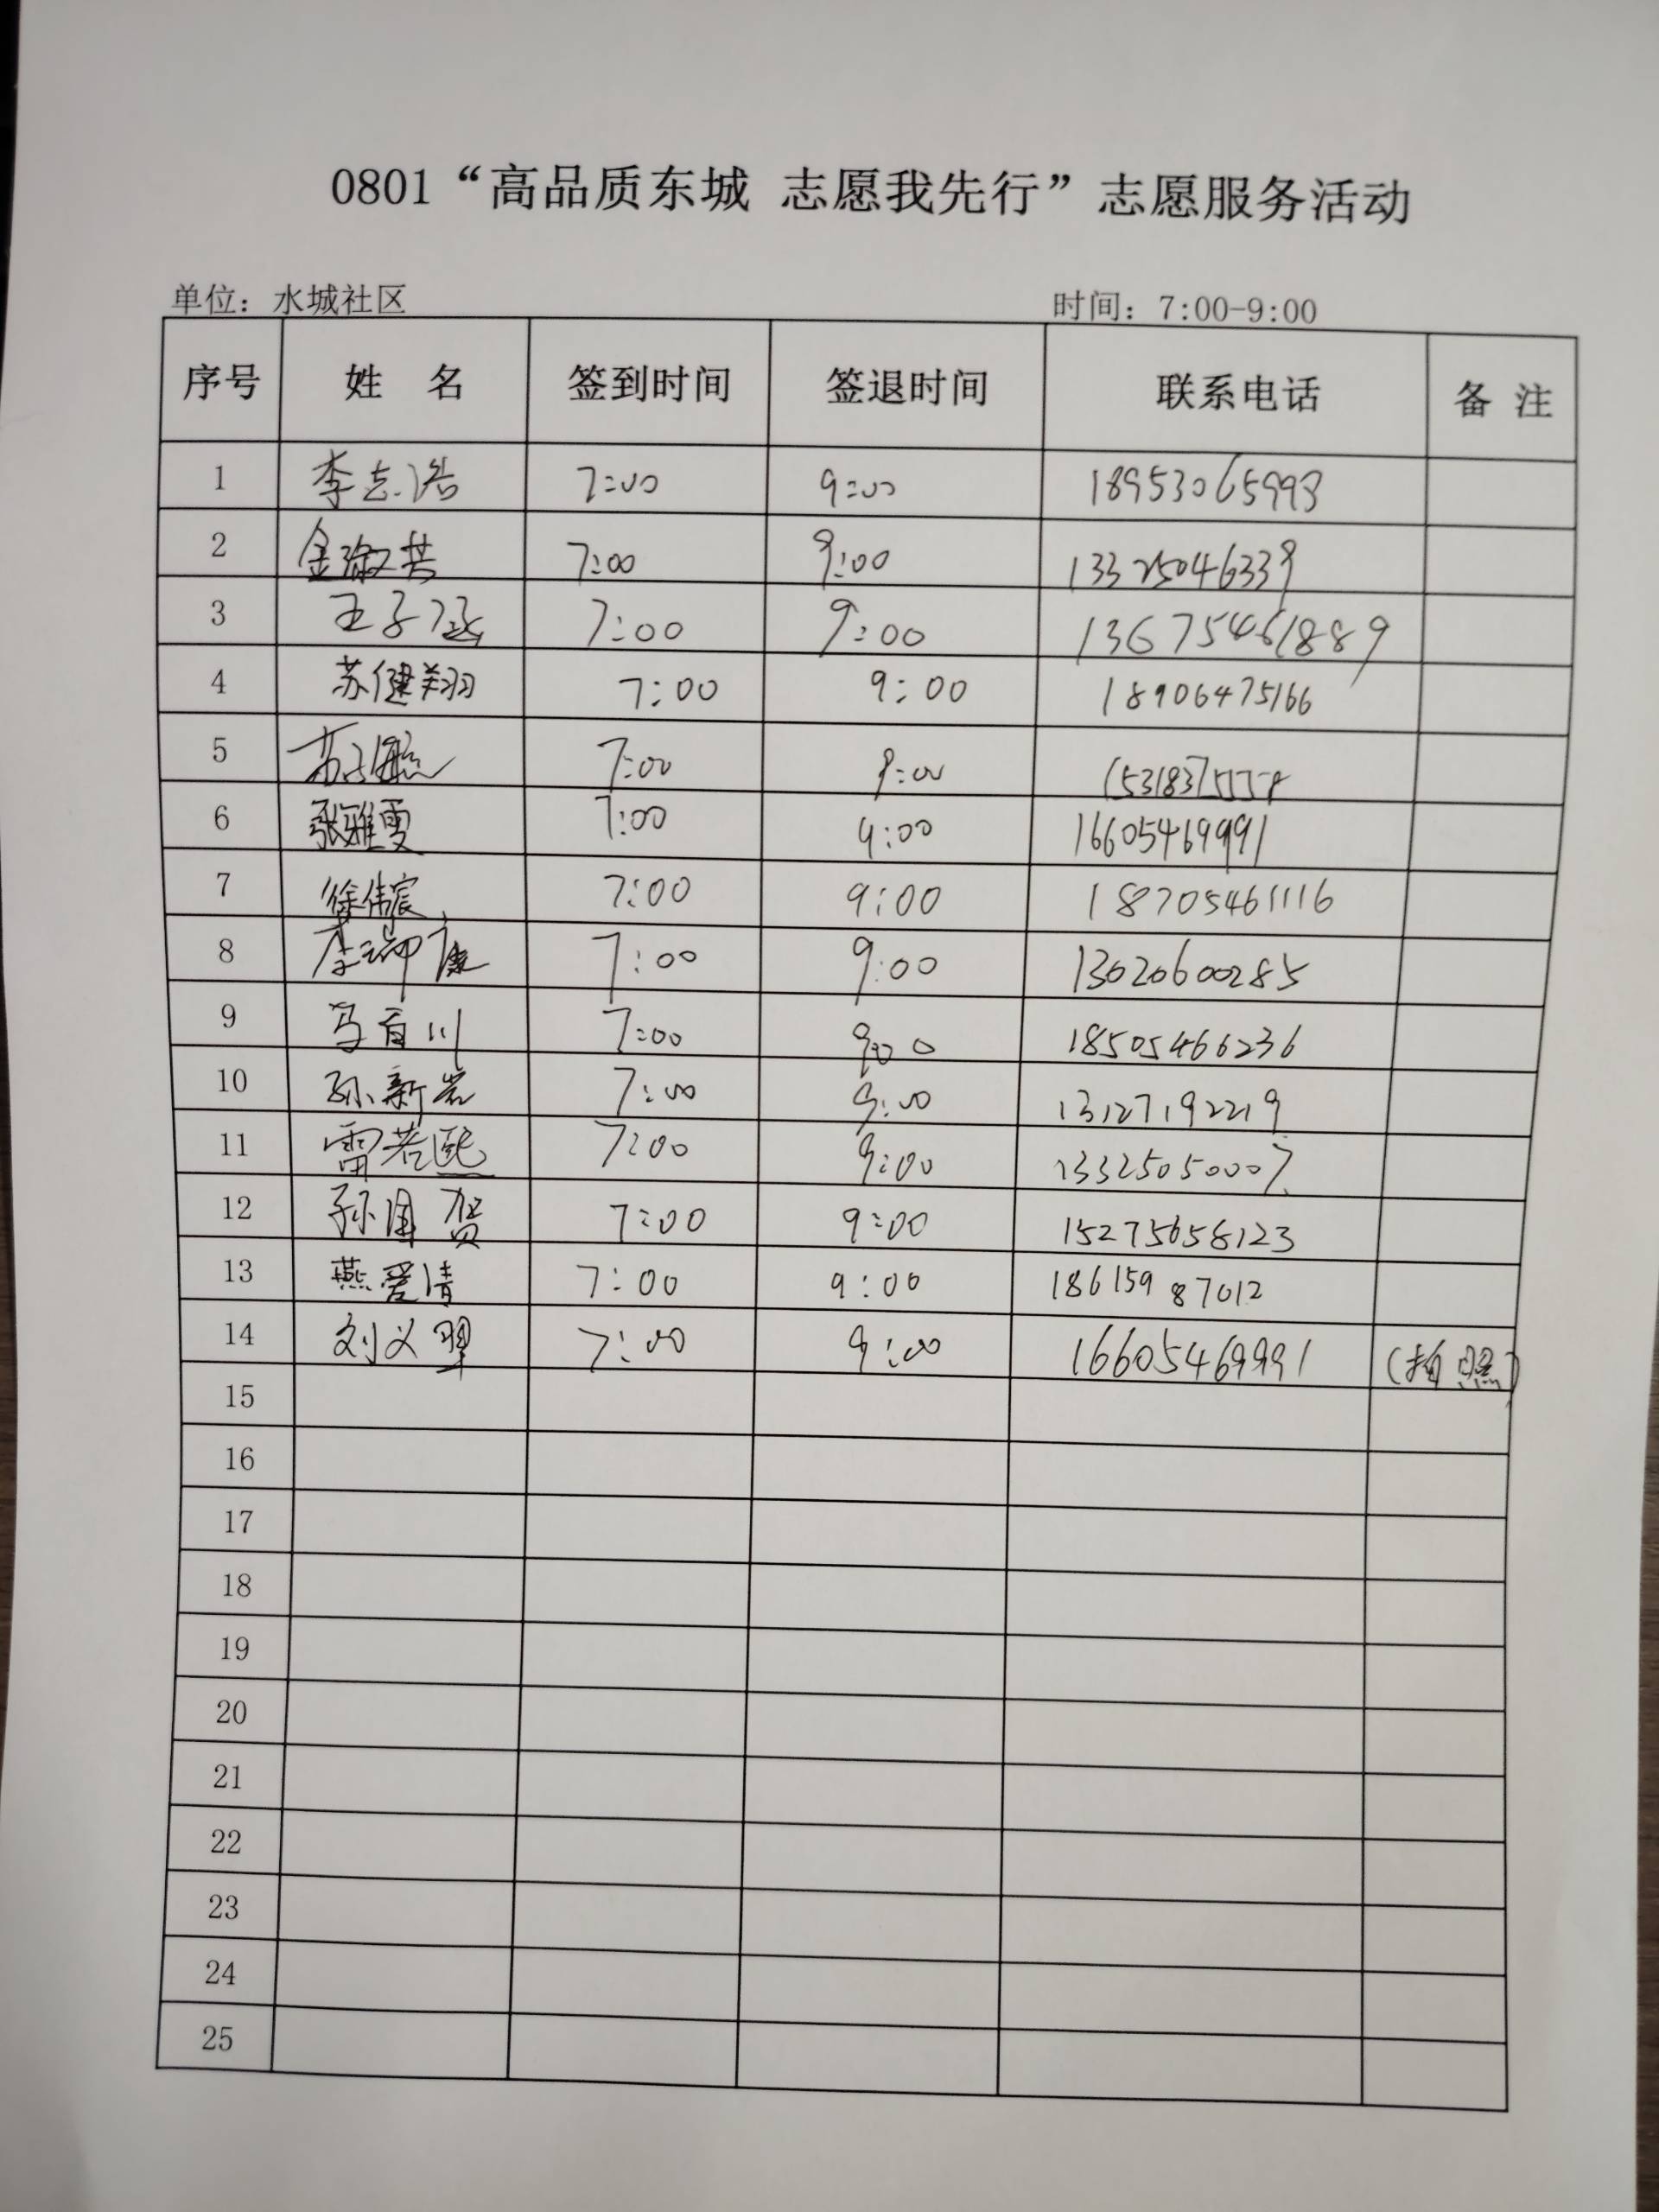 0801“高品质东城 志愿我先行”志愿服务活动
单位：水城社区 时间：7:00-9:00
序号 姓 名 签到时间 签退时间 联系电话 备 注
1 李志浩 7:00 9:00 18953065993
2 金淑芸 7:00 9:00 13325046339
3 王子涵 7:00 9:00 13675461889
4 苏健翔 7:00 9:00 18906475166
5 7:00 9:00
6 张雅雯 7:00 9:00 16605469991
7 徐伟宸 7:00 9:00 18705461116
8 李瑞康 7:00 9:00 13020600285
9 马百川 7:00 9:00 18505466236
10 孙新岩 7:00 9:00 13127192219
11 雷若熙 7:00 9:00 13325050007
12 孙国贺 7:00 9:00 15275658123
13 燕爱清 7:00 9:00 18615987012
14 刘义翠 7:00 9:00 16605469991 (拍照)
15
16
17
18
19
20
21
22
23
24
25